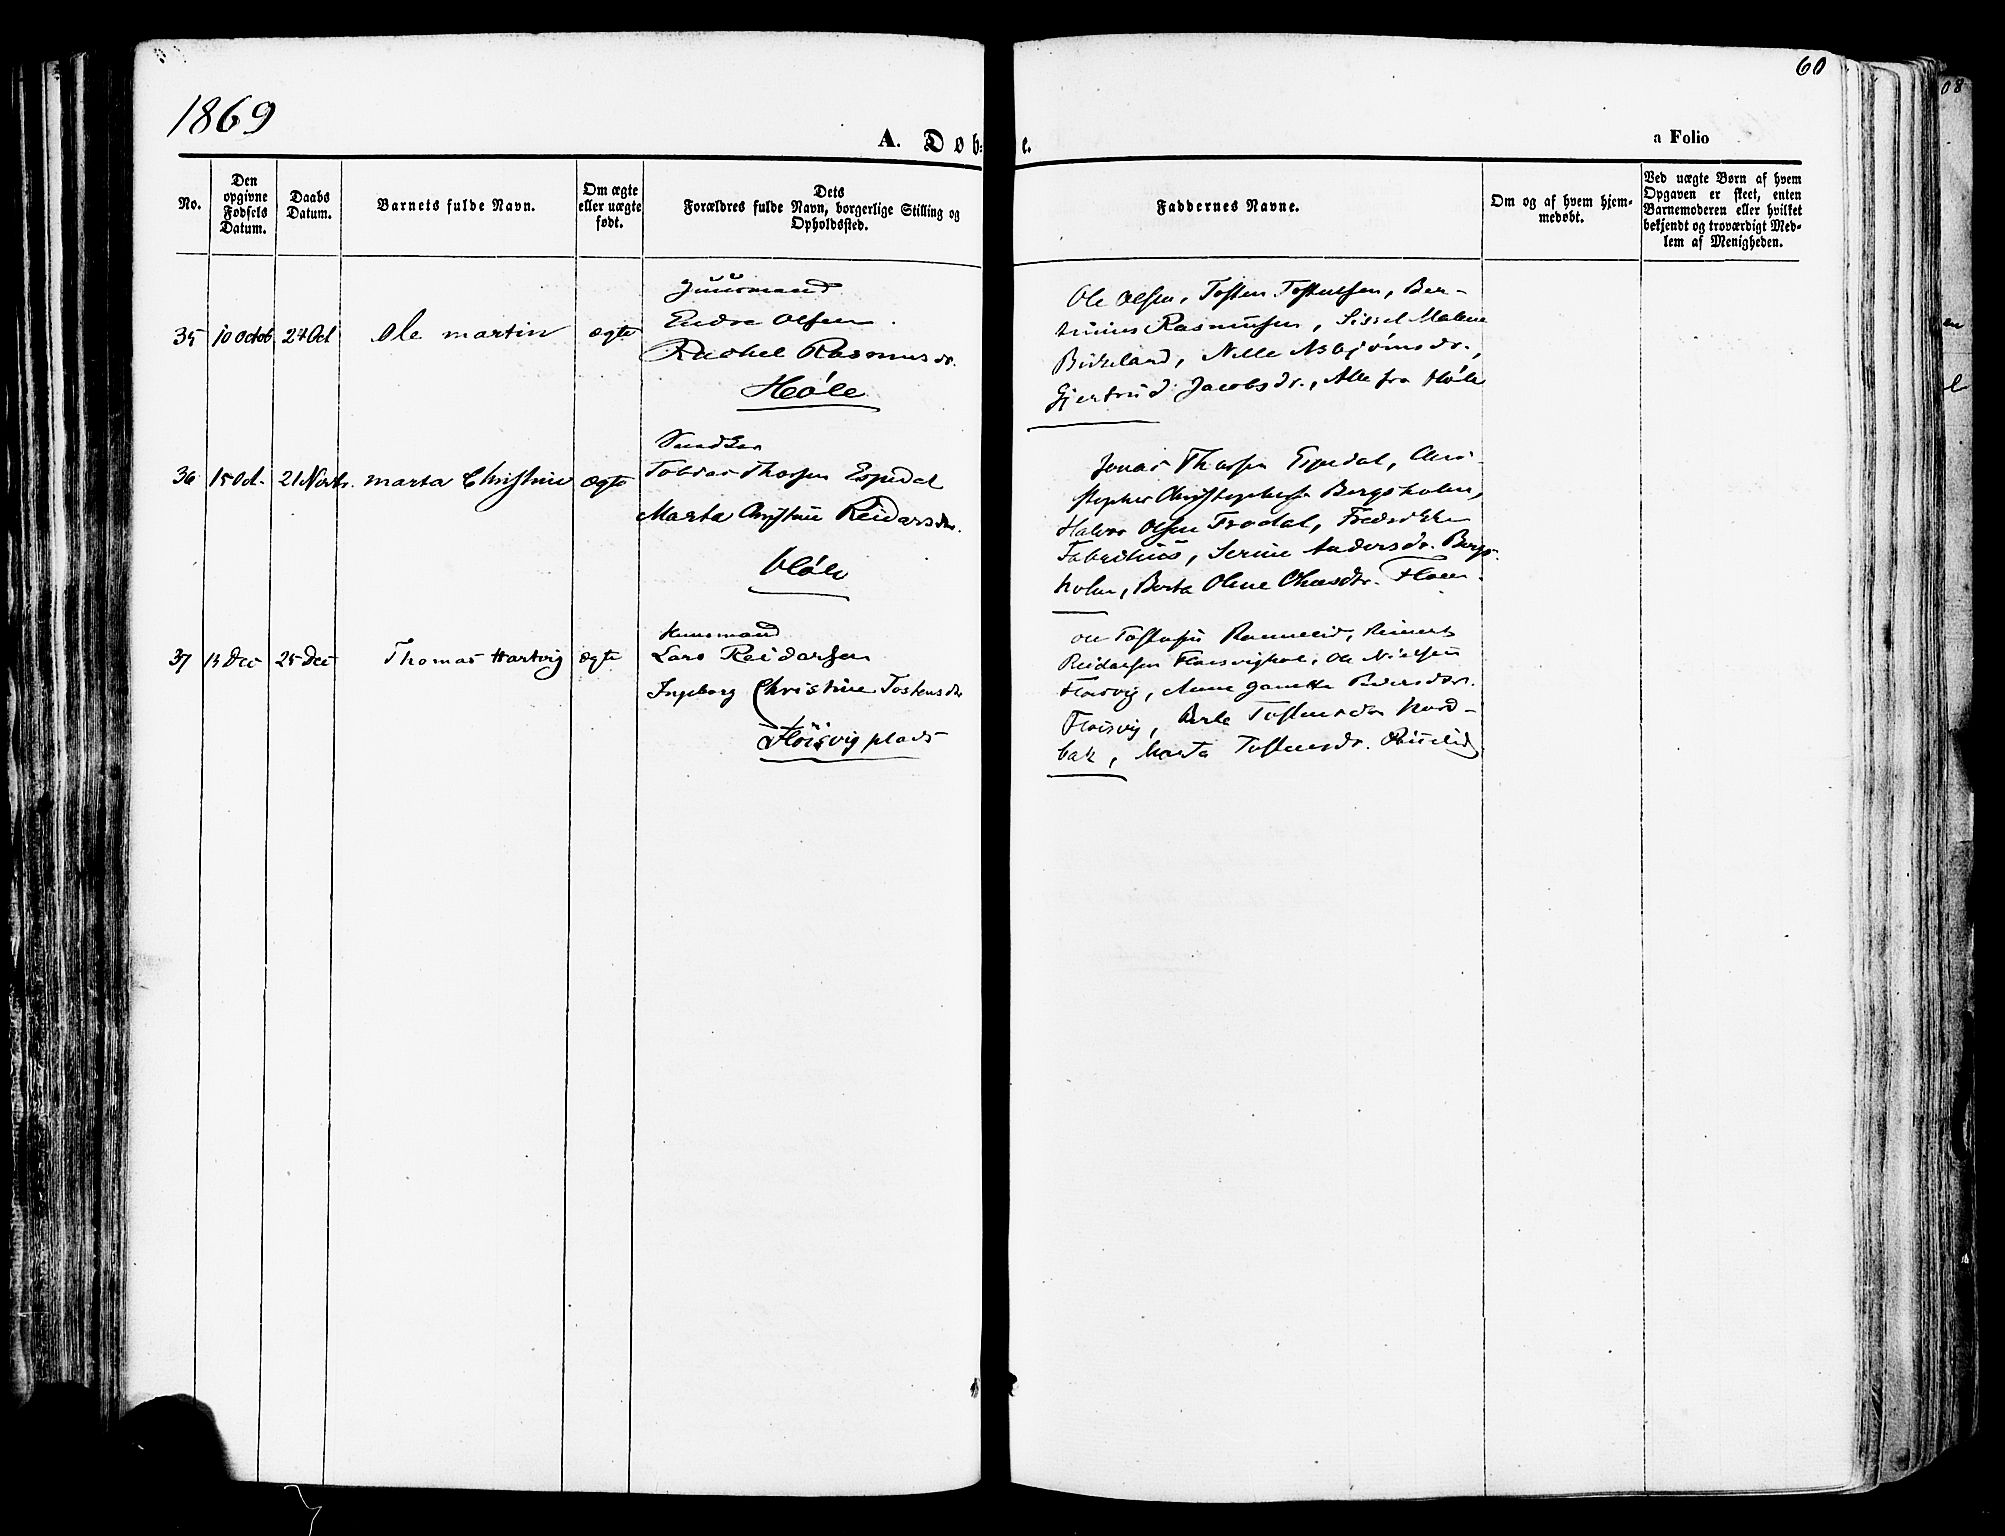 1869
60
A. Døb- e.
a Folio
No.
Den opgivne Fødsels Datum.
Daabs Datum.
Barnets fulde Navn.
Om ægte eller uægte født.
Dets Forældres fulde Navn, borgerlige Stilling og Opholdssted.
Faddernes Navne.
Om og af hvem hjem-
medøbt.
Ved uægte Børn af hvem
Opgaven er skeet, enten
Barnemoderen eller hvilket
bekjendt og troværdigt Med-
lem af Menigheden.
Huusmand
35 10 Octob 24 Oct Ole Martin ægte Endre Olsen
Rachel Rasmusdr.
Høle
Ole Olsen, Tosten Tostensen, Ber-
Rasmussen, Sissel Malene
Birkeland, Nille Asbjørnsdr.,
Gjertrud Jacobsdr., Alle fra Høle
36 15 Oct. 21 Novbr. Marta Christine ægte Tobias Thorsen Espedal
Marta Christine Reidarsdr.
Høle
Jonas Thorsen Espedal, Chri-
stopher Christophersen Bergsholm,
Halvor Olsen Frodal, Fredrikke
Fabritius, Serine Andersdr. Bergs-
holm, Berta Oline Olsdr.
Huusmand
37 13 Dec 25 Dec Thomas Hartvig ægte Lars Reidarsen
Ingeborg Christine Tostensdr
Floisvig plads
Ole Tostensen Reinert
Reidarsen Ole Nielsen
Floisvig, Anne
Floisvig, Berte Tostensdr Nord-
bak, Marta Tostensdr.